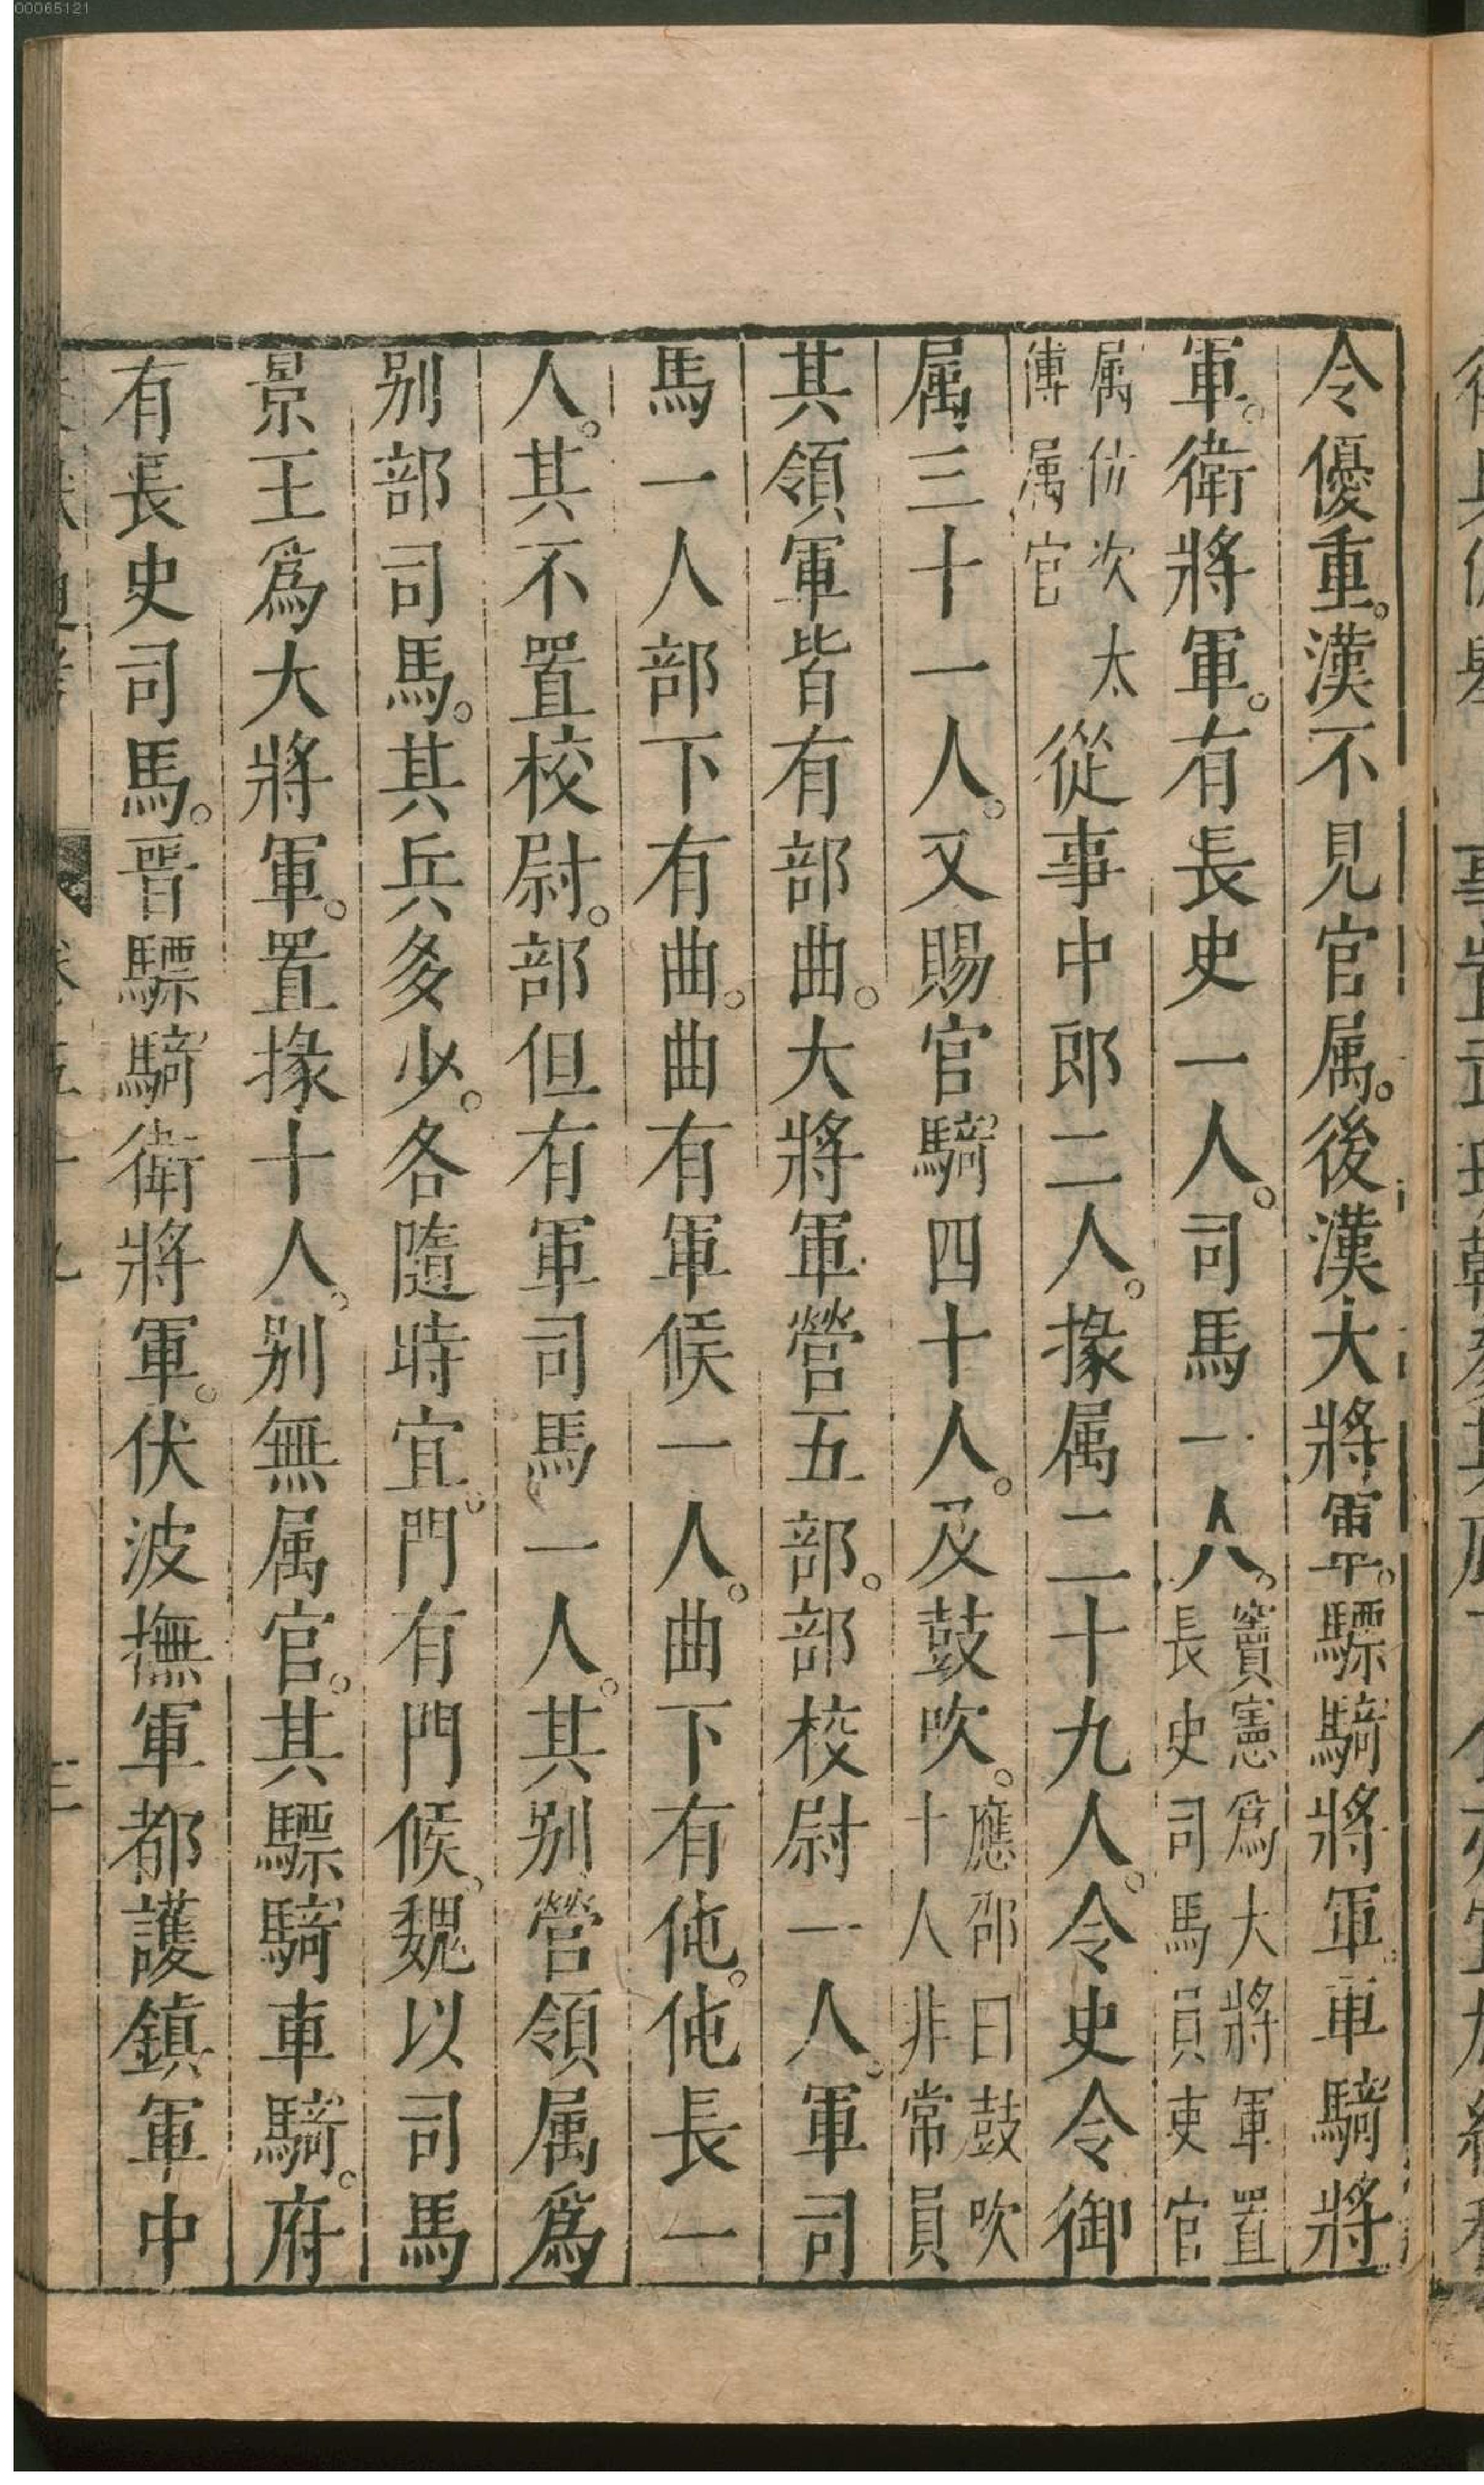 00065121
令優重。漢不見官属。後漢大將軍。驃騎將軍。車騎將
軍。衛將軍。有長史一人。司馬一人。竇憲爲大將軍置長史司馬員吏官
属位次太傅属官從事中郎二人。掾属二十九人。令史令御
属三十一人。又賜官騎四十人。及鼓吹。應邵曰鼓吹十人非常員
其領軍皆有部曲。大將軍營五部。部校尉一人。軍司
馬一人部下有曲。曲有軍候一人。曲下有伅。伅長一
人。其不置校尉。部但有軍司馬一人。其别營領属爲
别部司馬。其兵多少。各隨時宜。門有門候。魏以司馬
景王爲大將軍。置掾十人。别無属官。其驃騎車騎。府
有長史司馬。晋驃騎衛將軍。伏波撫軍都護鎮軍中